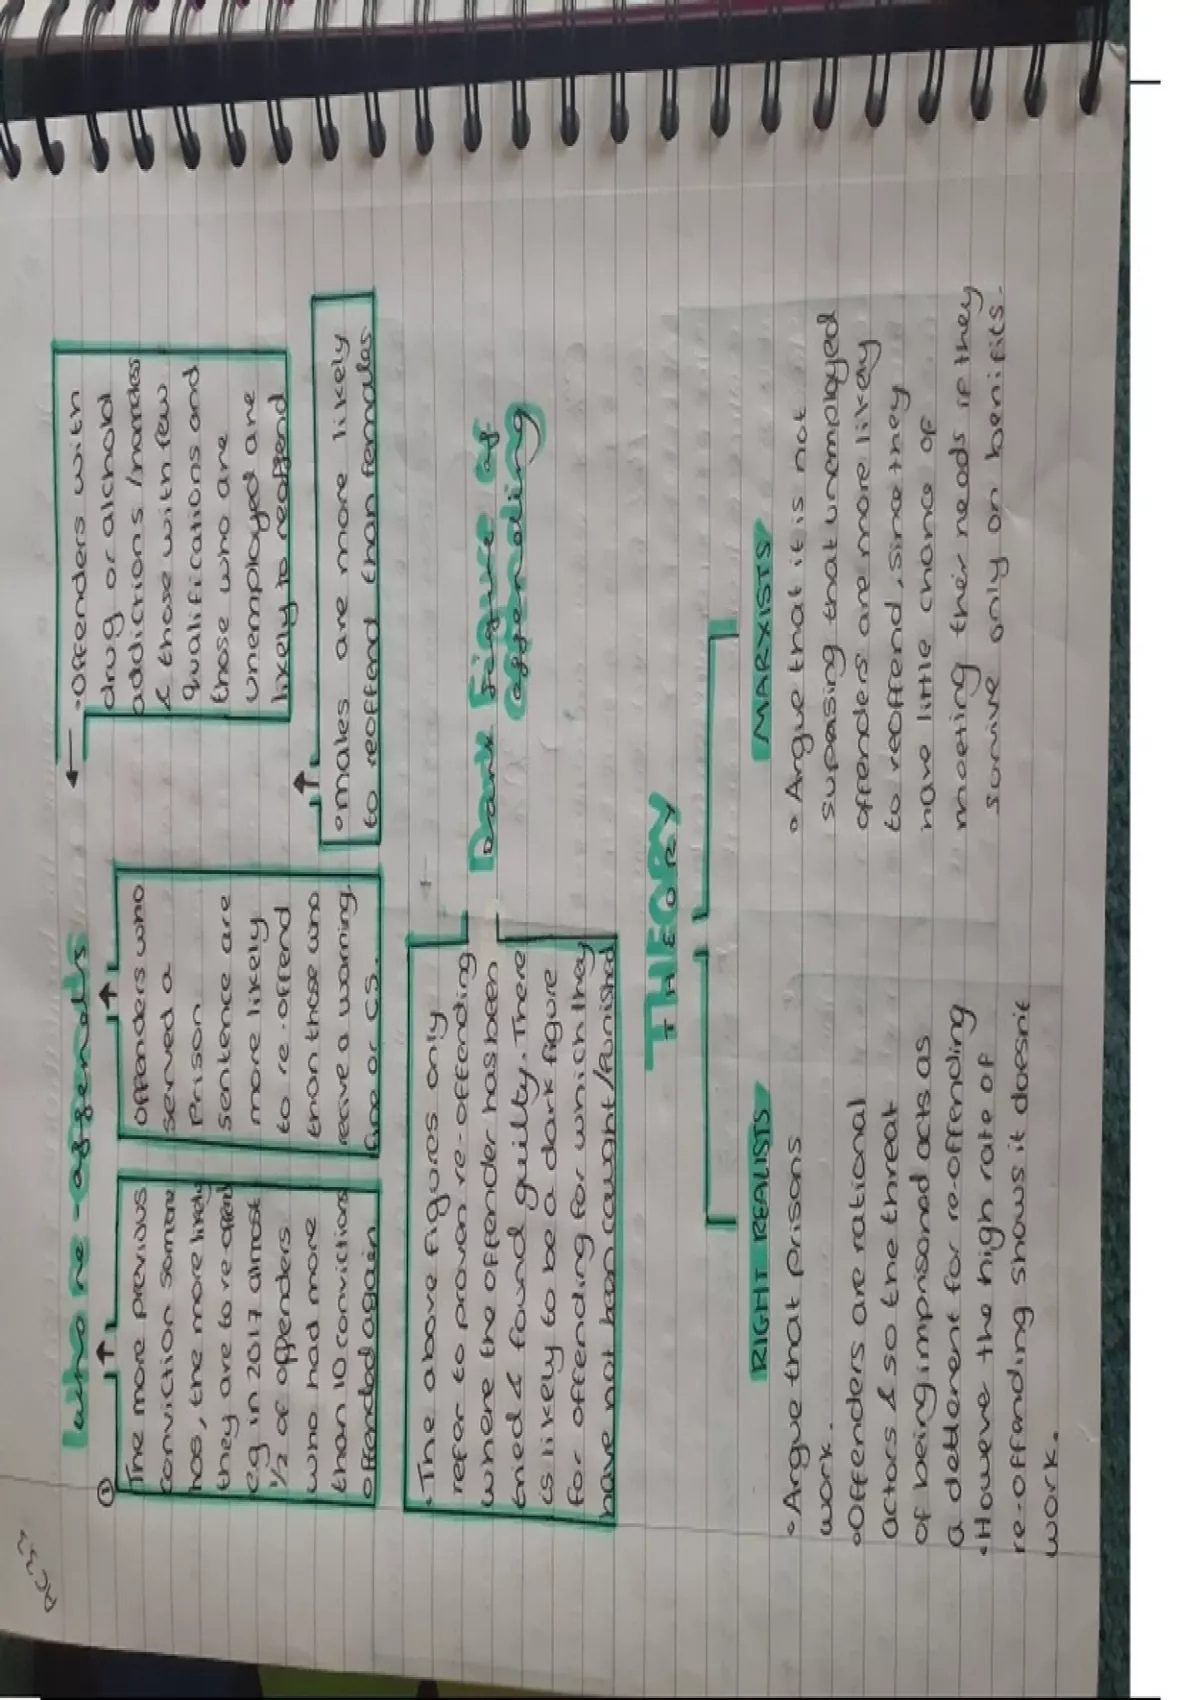 AC3.2
Who re-offends
①
The more previous
conviction someone
has, the more likely
they are to re-offend
e.g in 2017 almost
1/2 of offenders
who had more
than 10 convictions
offended again
offenders who
served a
Prison
sentence are
more likely
to re-offend
than those who
receive a warning
fine or CS.
•Offenders with
drug or alchohol
addictions /mandos
& those with few
qualifications and
those who are
unemployed are
likely to reoffend
•males are more likely
to reoffend than females
Dark Figure of
offending
•The above figures only
refer to proven re-offending
where the offender has been
tried & found guilty. There
is likely to be a dark figure
for offending for which they
have not been caught/punished
THEORY
RIGHT REALISTS
•Argue that prisons
work.
•Offenders are rational
actors & so the threat
of being imprisoned acts as
a detterent for re-offending
•Howeve the high rate of
re-offending shows it doesn't
work.
MARXISTS
•Argue that it is not
suprising that unemployed
offenders are more likely
to reoffend, since they
have little chance of
meeting their needs if they
survive only on benifits.